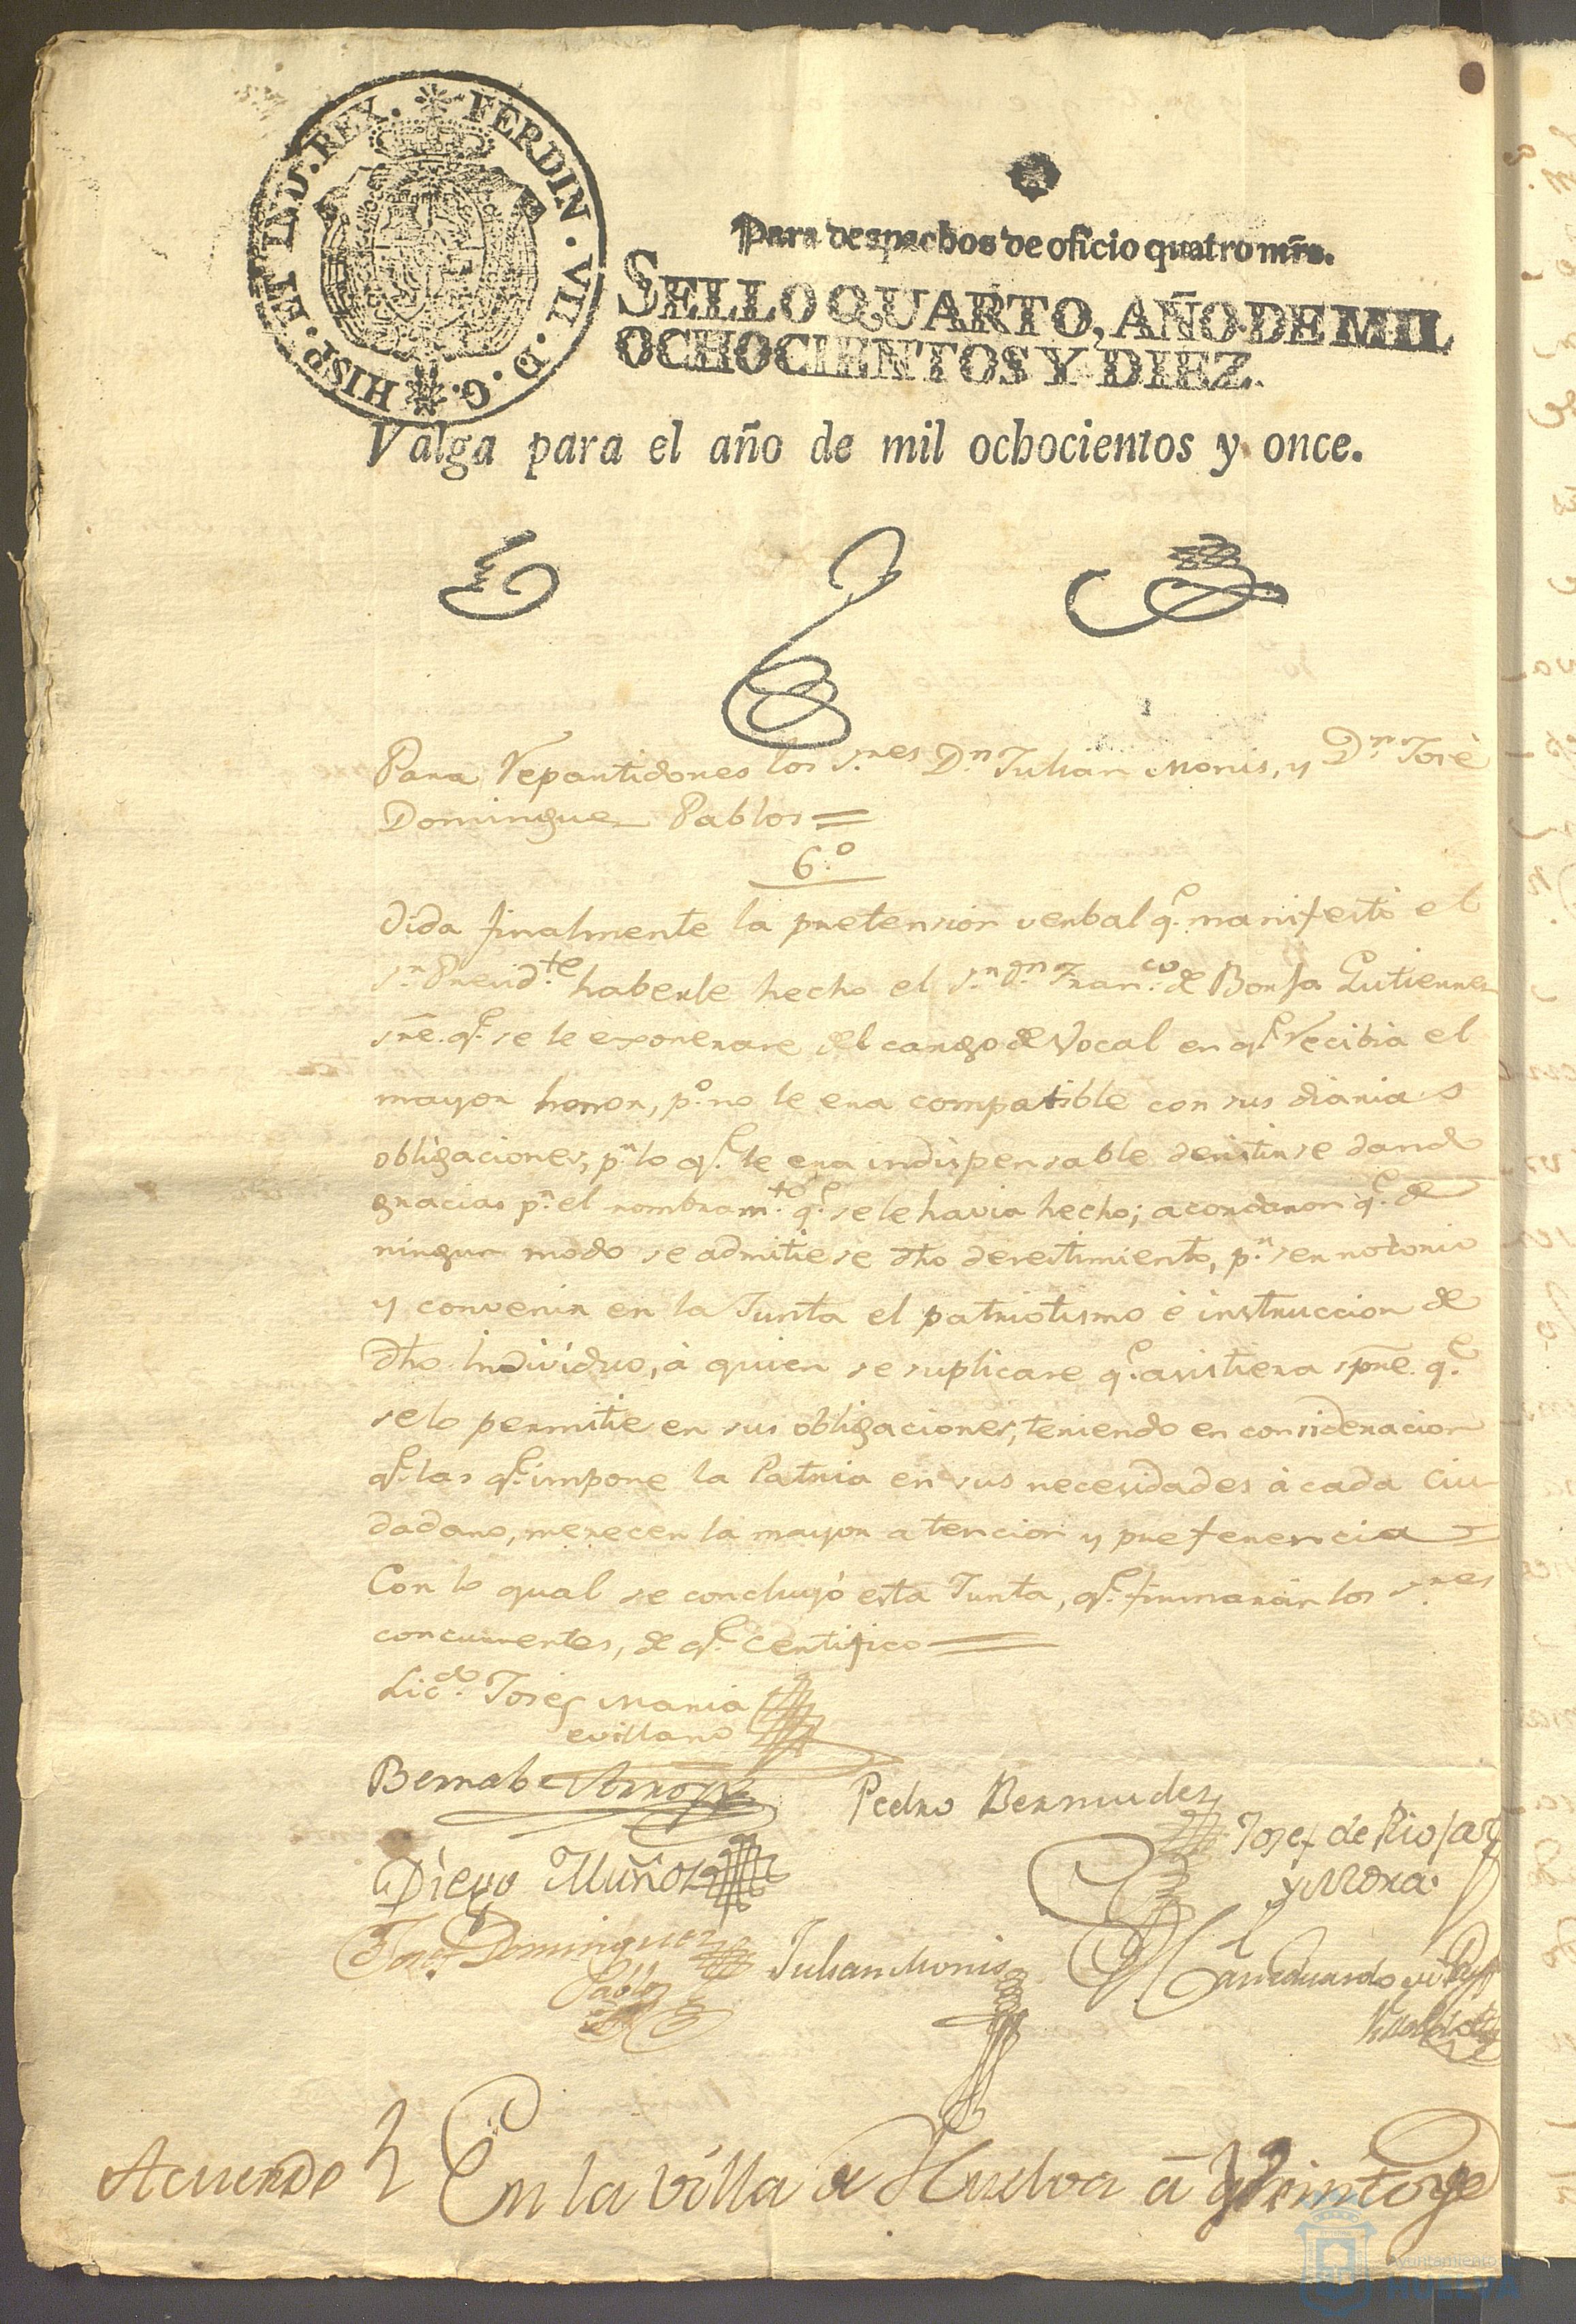 FERDIN. VII. D. G. HISP. ET IND. REX.
Para despachos de oficio quatro mrs.
SELLO QUARTO, AÑO DE MIL
OCHOCIENTOS Y DIEZ.
Valga para el año de mil ochocientos y once.
Para repartidores los S.res Dn Julian Monis, y Dn José
Dominguez Pablos =
6.º
Oida finalmente la pretension verbal q.e manifestó el
S.r Presid.te haberle hecho el S.r D.n Fran.co de Borja Gutierrez
sre. q.e se le exonerase del cargo de Vocal en q.e recibia el
mayor honor, p.o no le era compatible con sus diarias
obligaciones, p.r lo q.e le era indispensable desistirse dando
gracias p.r el nombram.to q.e se le havia hecho; acordaron q.e de
ningun modo se admitiese dho desestimiento, p.r ser notorio
y convenir en la Junta el patriotismo é instruccion de
dho Individuo, à quien se suplicase q.e asistiera spre. q.e
se lo permitiesen sus obligaciones, teniendo en consideracion
q.e las q.e impone la Patria en sus necesidades à cada Ciu
dadano, merecen la mayor atencion y preferencia =
Con lo qual se concluyó esta Junta, q.e firmarán los S.res
concurrentes, de q.e Certifico =
Lic.do José Maria
Sevillano
Bernabe Arroyo
Pedro Bermudez
Josef de Rioja
y Mora
Diego Muñoz
José Dominguez
Pablos
Julian Monis
Acuerdo
En la Villa de Huelva à Veinte y
Ayuntamiento
HUELVA